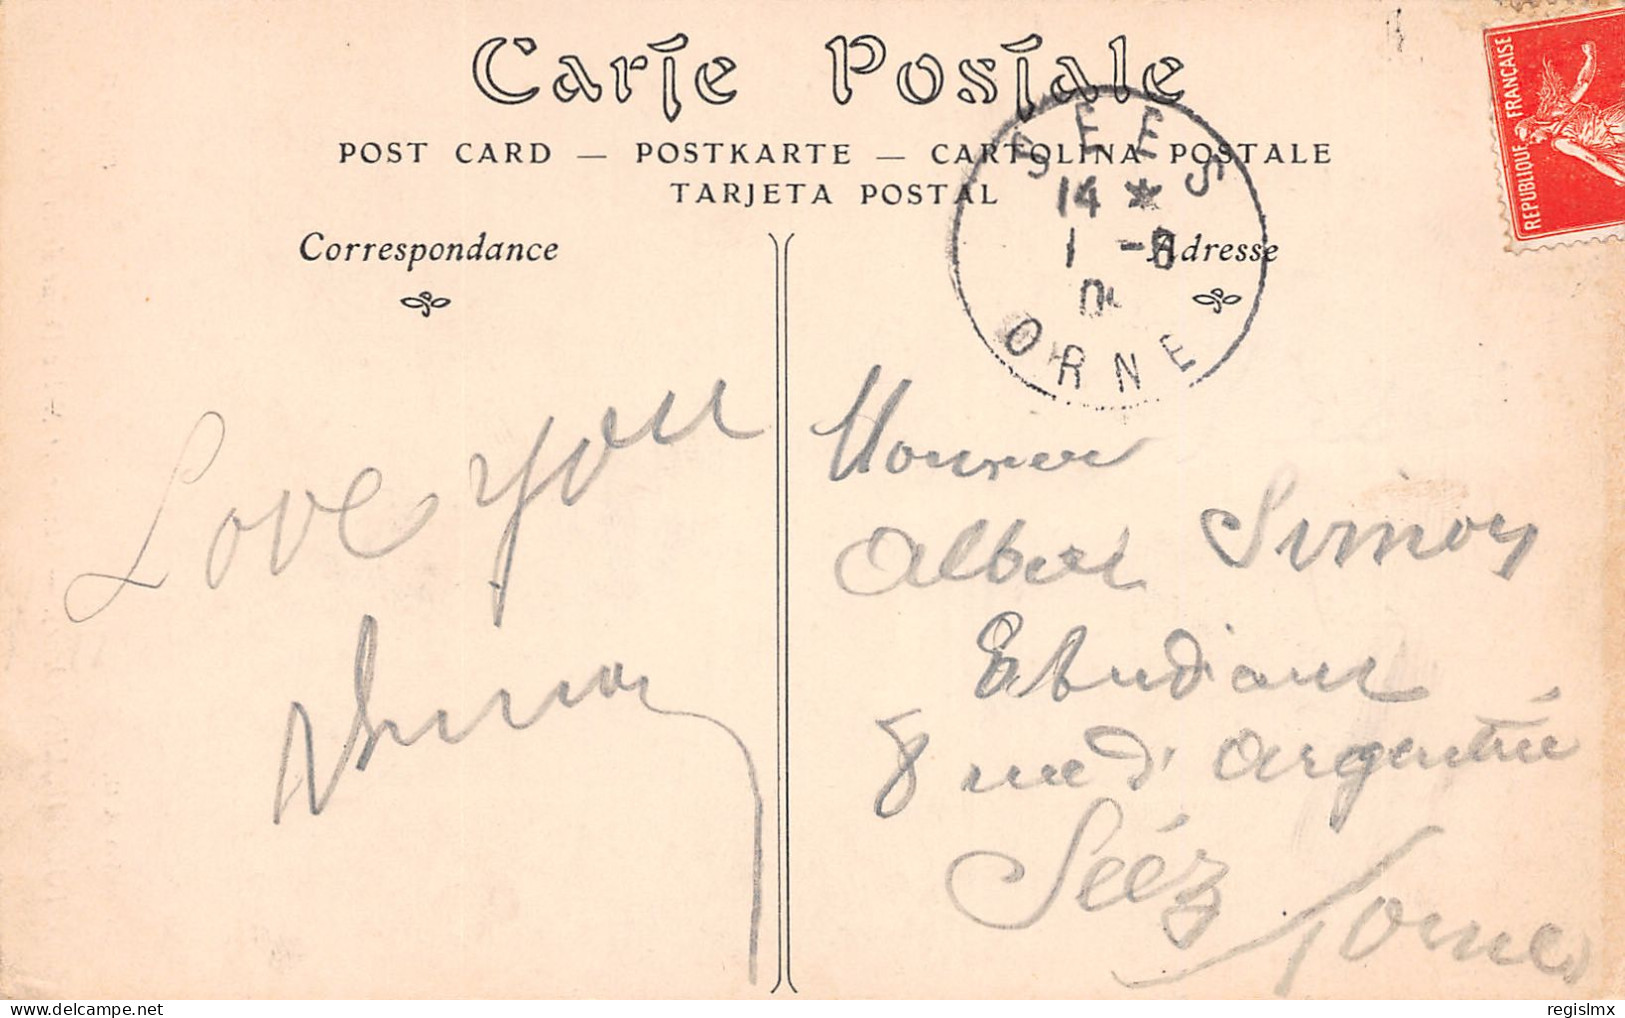 Carte Postale
POST CARD — POSTKARTE — CARTOLINA POSTALE
TARJETA POSTAL
Correspondance
Adresse
REPUBLIQUE FRANÇAISE
SEES
14 *
1 -8
ORNE
Love you
Monsieur
Albert Simon
Etudiant
8 rue d'argentré
Sééz
Orne
regislmx